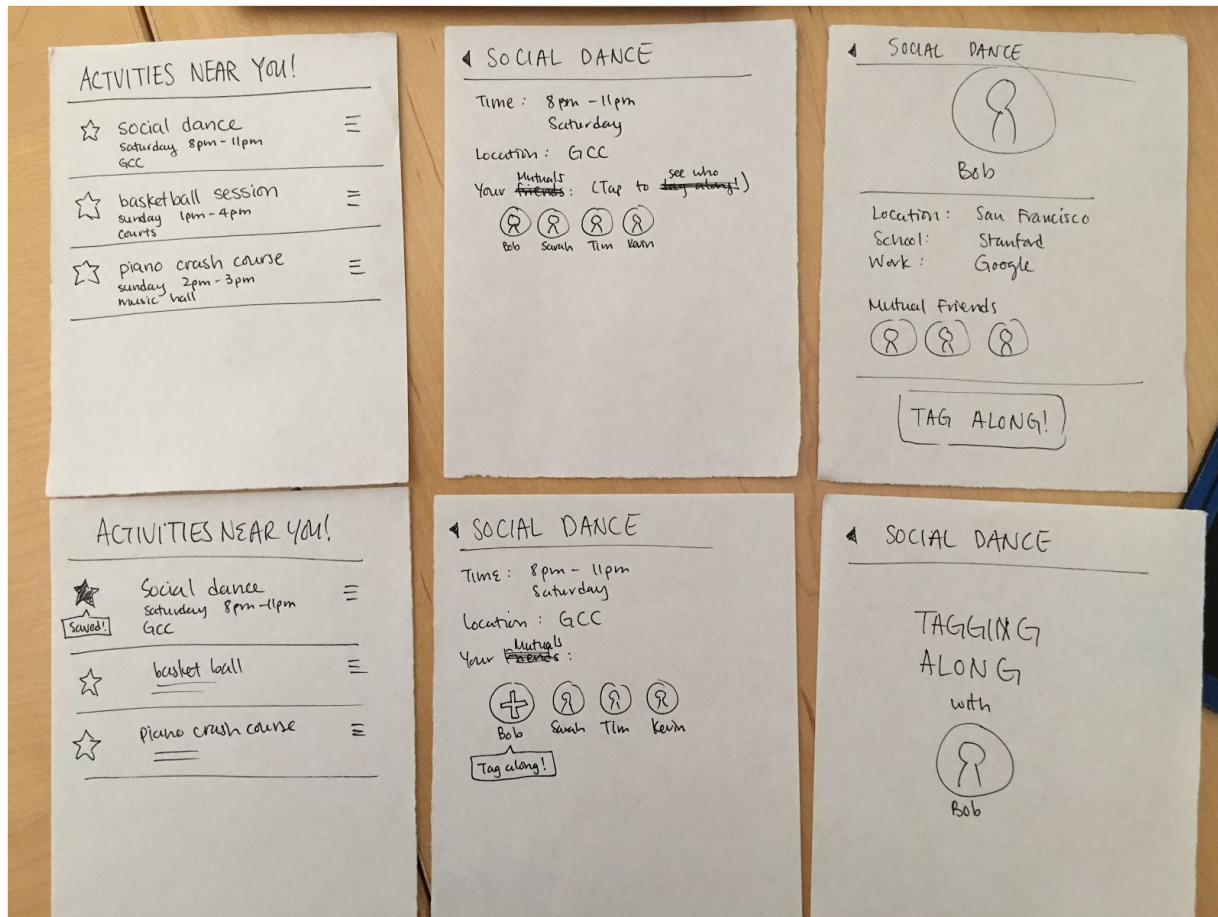 ACTVITIES NEAR YOU!
social dance
Saturday 8pm-11pm
GCC
basketball session
sunday 1pm-4pm
courts
piano crash course
sunday 2pm-3pm
music hall
SOCIAL DANCE
Time: 8pm-11pm
Saturday
Location: GCC
Mutuals see who
Your friends: (Tap to tag along!)
Bob Sarah Tim Kevin
SOCIAL DANCE
Bob
Location: San Francisco
School: Stanford
Work: Google
Mutual Friends
TAG ALONG!
ACTIVITIES NEAR YOU!
Social dance
Saturday 8pm-11pm
Saved! GCC
basket ball
piano crash course
SOCIAL DANCE
Time: 8pm - 11pm
Saturday
Location: GCC
Mutuals
Your Friends:
Bob Sarah Tim Kevin
Tag along!
SOCIAL DANCE
TAGGING
ALONG
with
Bob